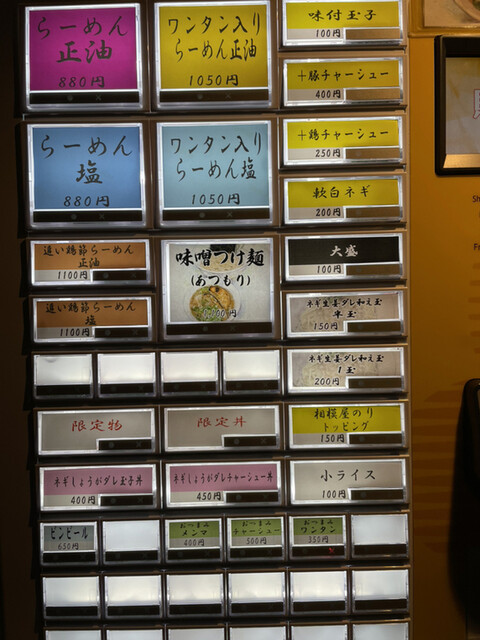 らーめん
正油
880円
ワンタン入り
らーめん正油
1050円
味付玉子
100円
+豚チャーシュー
400円
らーめん
塩
880円
ワンタン入り
らーめん塩
1050円
+鶏チャーシュー
250円
軟白ネギ
200円
追い鶏節らーめん
正油
1100円
味噌つけ麺
(あつもり)
大盛
100円
追い鶏節らーめん
塩
1100円
ネギ生姜ダレ和え玉
半玉
150円
ネギ生姜ダレ和え玉
1玉
200円
限定物
限定丼
相模屋のり
トッピング
150円
ネギしょうがダレ玉子丼
400円
ネギしょうがダレチャーシュー丼
450円
小ライス
100円
ビンビール
650円
おつまみ
メンマ
400円
おつまみ
チャーシュー
500円
おつまみ
ワンタン
350円